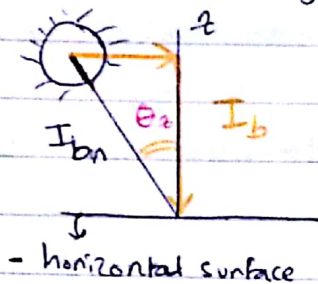 z
θz
Ib
Ibn
- horizontal surface